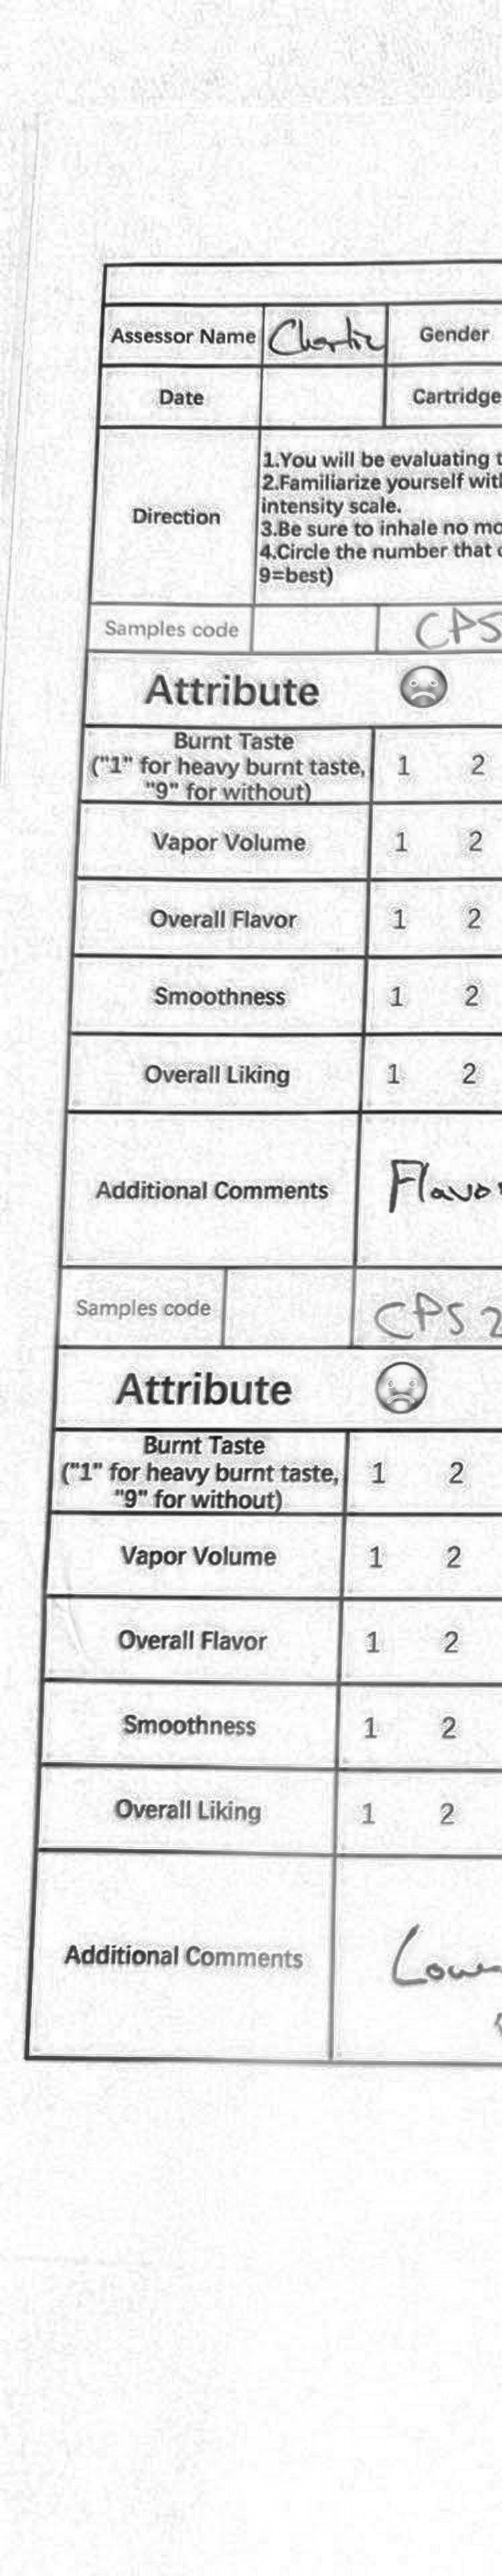 Assessor Name Charlie Gender
Date Cartridge
Direction
1.You will be evaluating
2.Familiarize yourself
intensity scale.
3.Be sure to inhale no
4.Circle the number that
9=best)
Samples code CPS
Attribute
Burnt Taste
("1" for heavy burnt taste, 1 2
"9" for without)
Vapor Volume 1 2
Overall Flavor 1 2
Smoothness 1 2
Overall Liking 1 2
Additional Comments Flavor
Samples code CPS 2
Attribute
Burnt Taste
("1" for heavy burnt taste, 1 2
"9" for without)
Vapor Volume 1 2
Overall Flavor 1 2
Smoothness 1 2
Overall Liking 1 2
Additional Comments